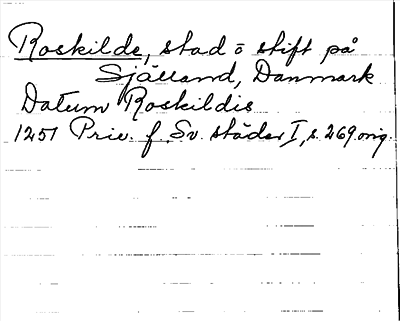 Roskilde, stad o stift på
Själland, Danmark
Datum Roskildis
1251 Priv. f. Sv. städer I, s. 269 orig.